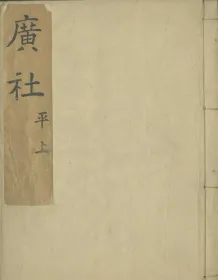 廣社
平上